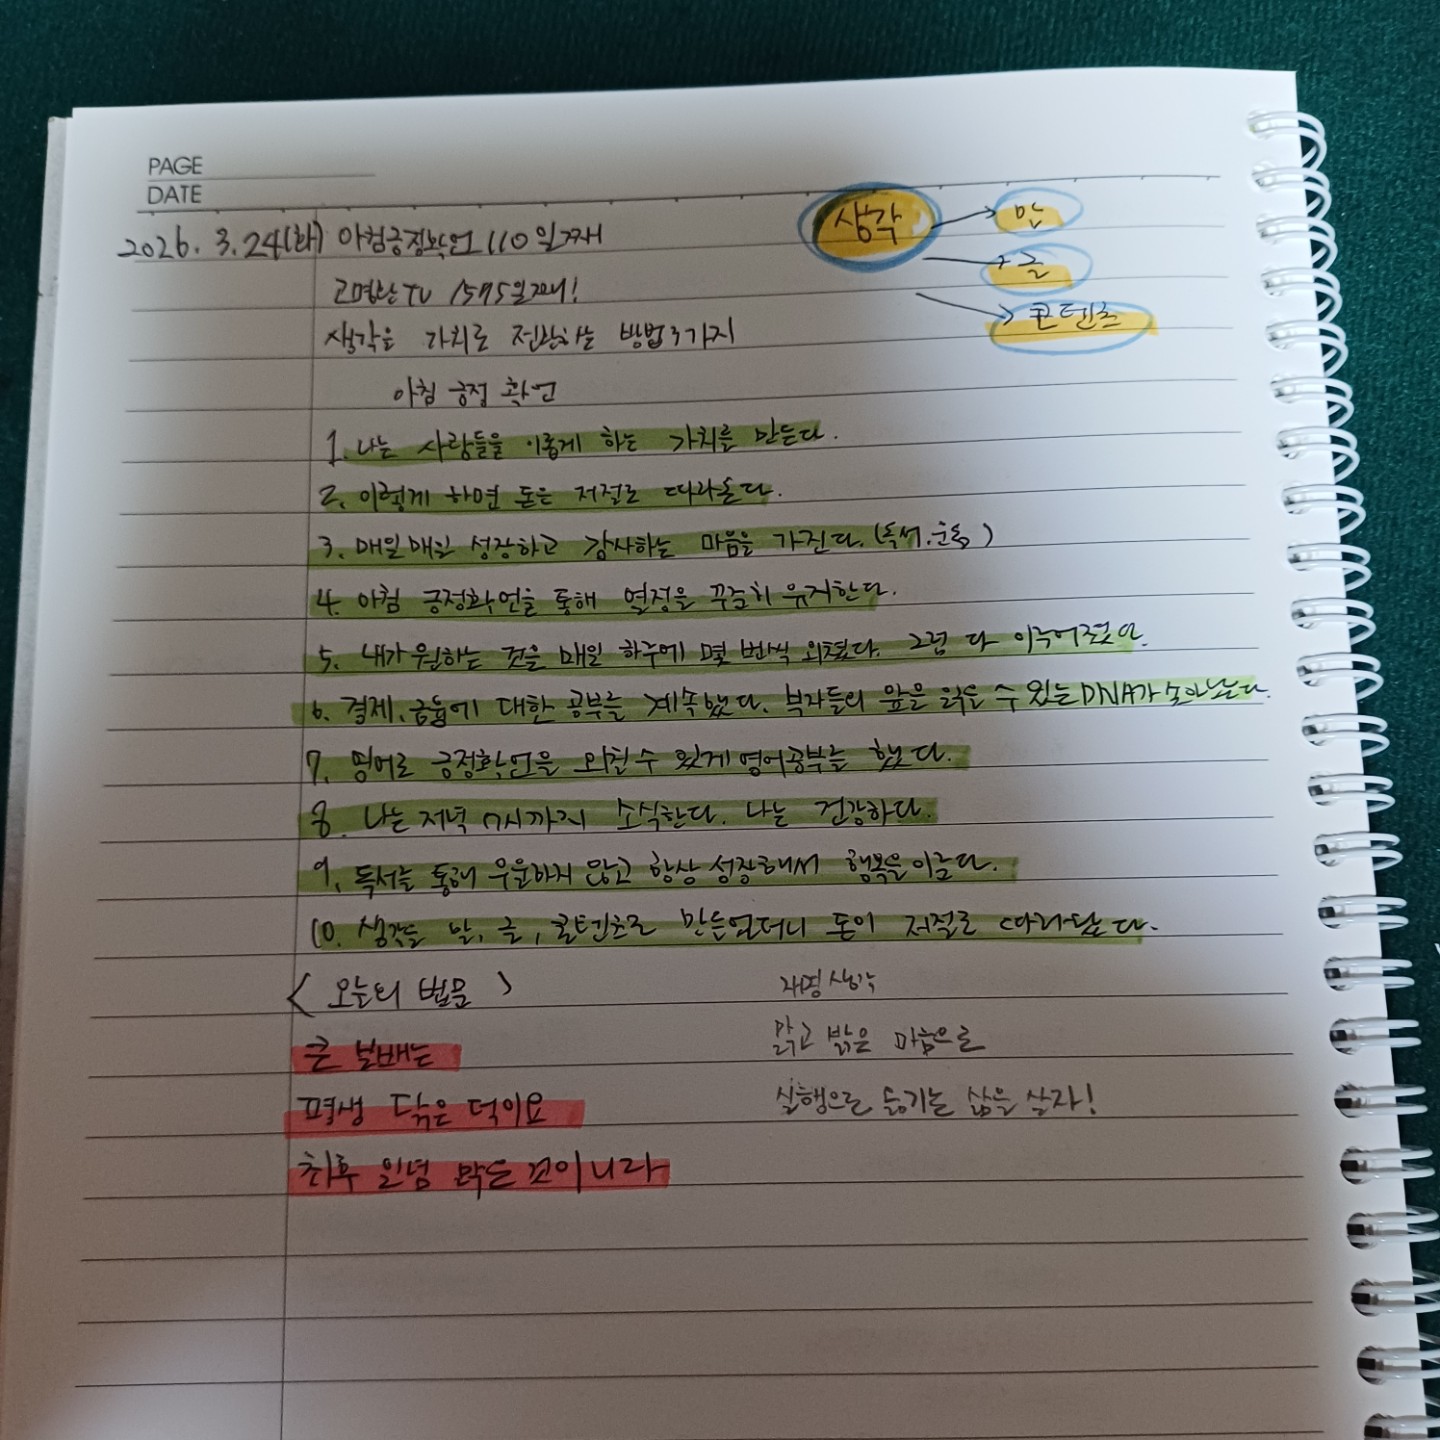 PAGE
DATE
2026. 3. 24(화) 아침긍정확언 110일째
고명환TV 1595일째!
생각을 가치로 전환하는 방법 3가지
생각 → 말
→ 글
→ 콘텐츠
아침 긍정 확언
1. 나는 사람들을 이롭게 하는 가치를 만든다.
2. 이렇게 하면 돈은 저절로 따라온다.
3. 매일매일 성장하고 감사하는 마음을 가진다. (독서, 운동)
4. 아침 긍정확언을 통해 열정을 꾸준히 유지한다.
5. 내가 원하는 것을 매일 하루에 몇 번씩 외쳤다. 그럼 다 이루어졌다.
6. 경제, 금융에 대한 공부를 계속했다. 부자들의 앞을 읽을 수 있는 DNA가 솟아난다.
7. 영어로 긍정확언을 외칠 수 있게 영어공부를 했다.
8. 나는 저녁 7시까지 소식한다. 나는 건강하다.
9. 독서를 통해 우울하지 않고 항상 성장해서 행복을 이룬다.
10. 생각을 말, 글, 콘텐츠로 만들었더니 돈이 저절로 따라왔다.
< 오늘의 법문 >
큰 보배는
평생 닦은 덕이요
최후 일념 맑은 것이니라
생각
맑고 밝은 마음으로
실행으로 옮기는 삶을 살자!